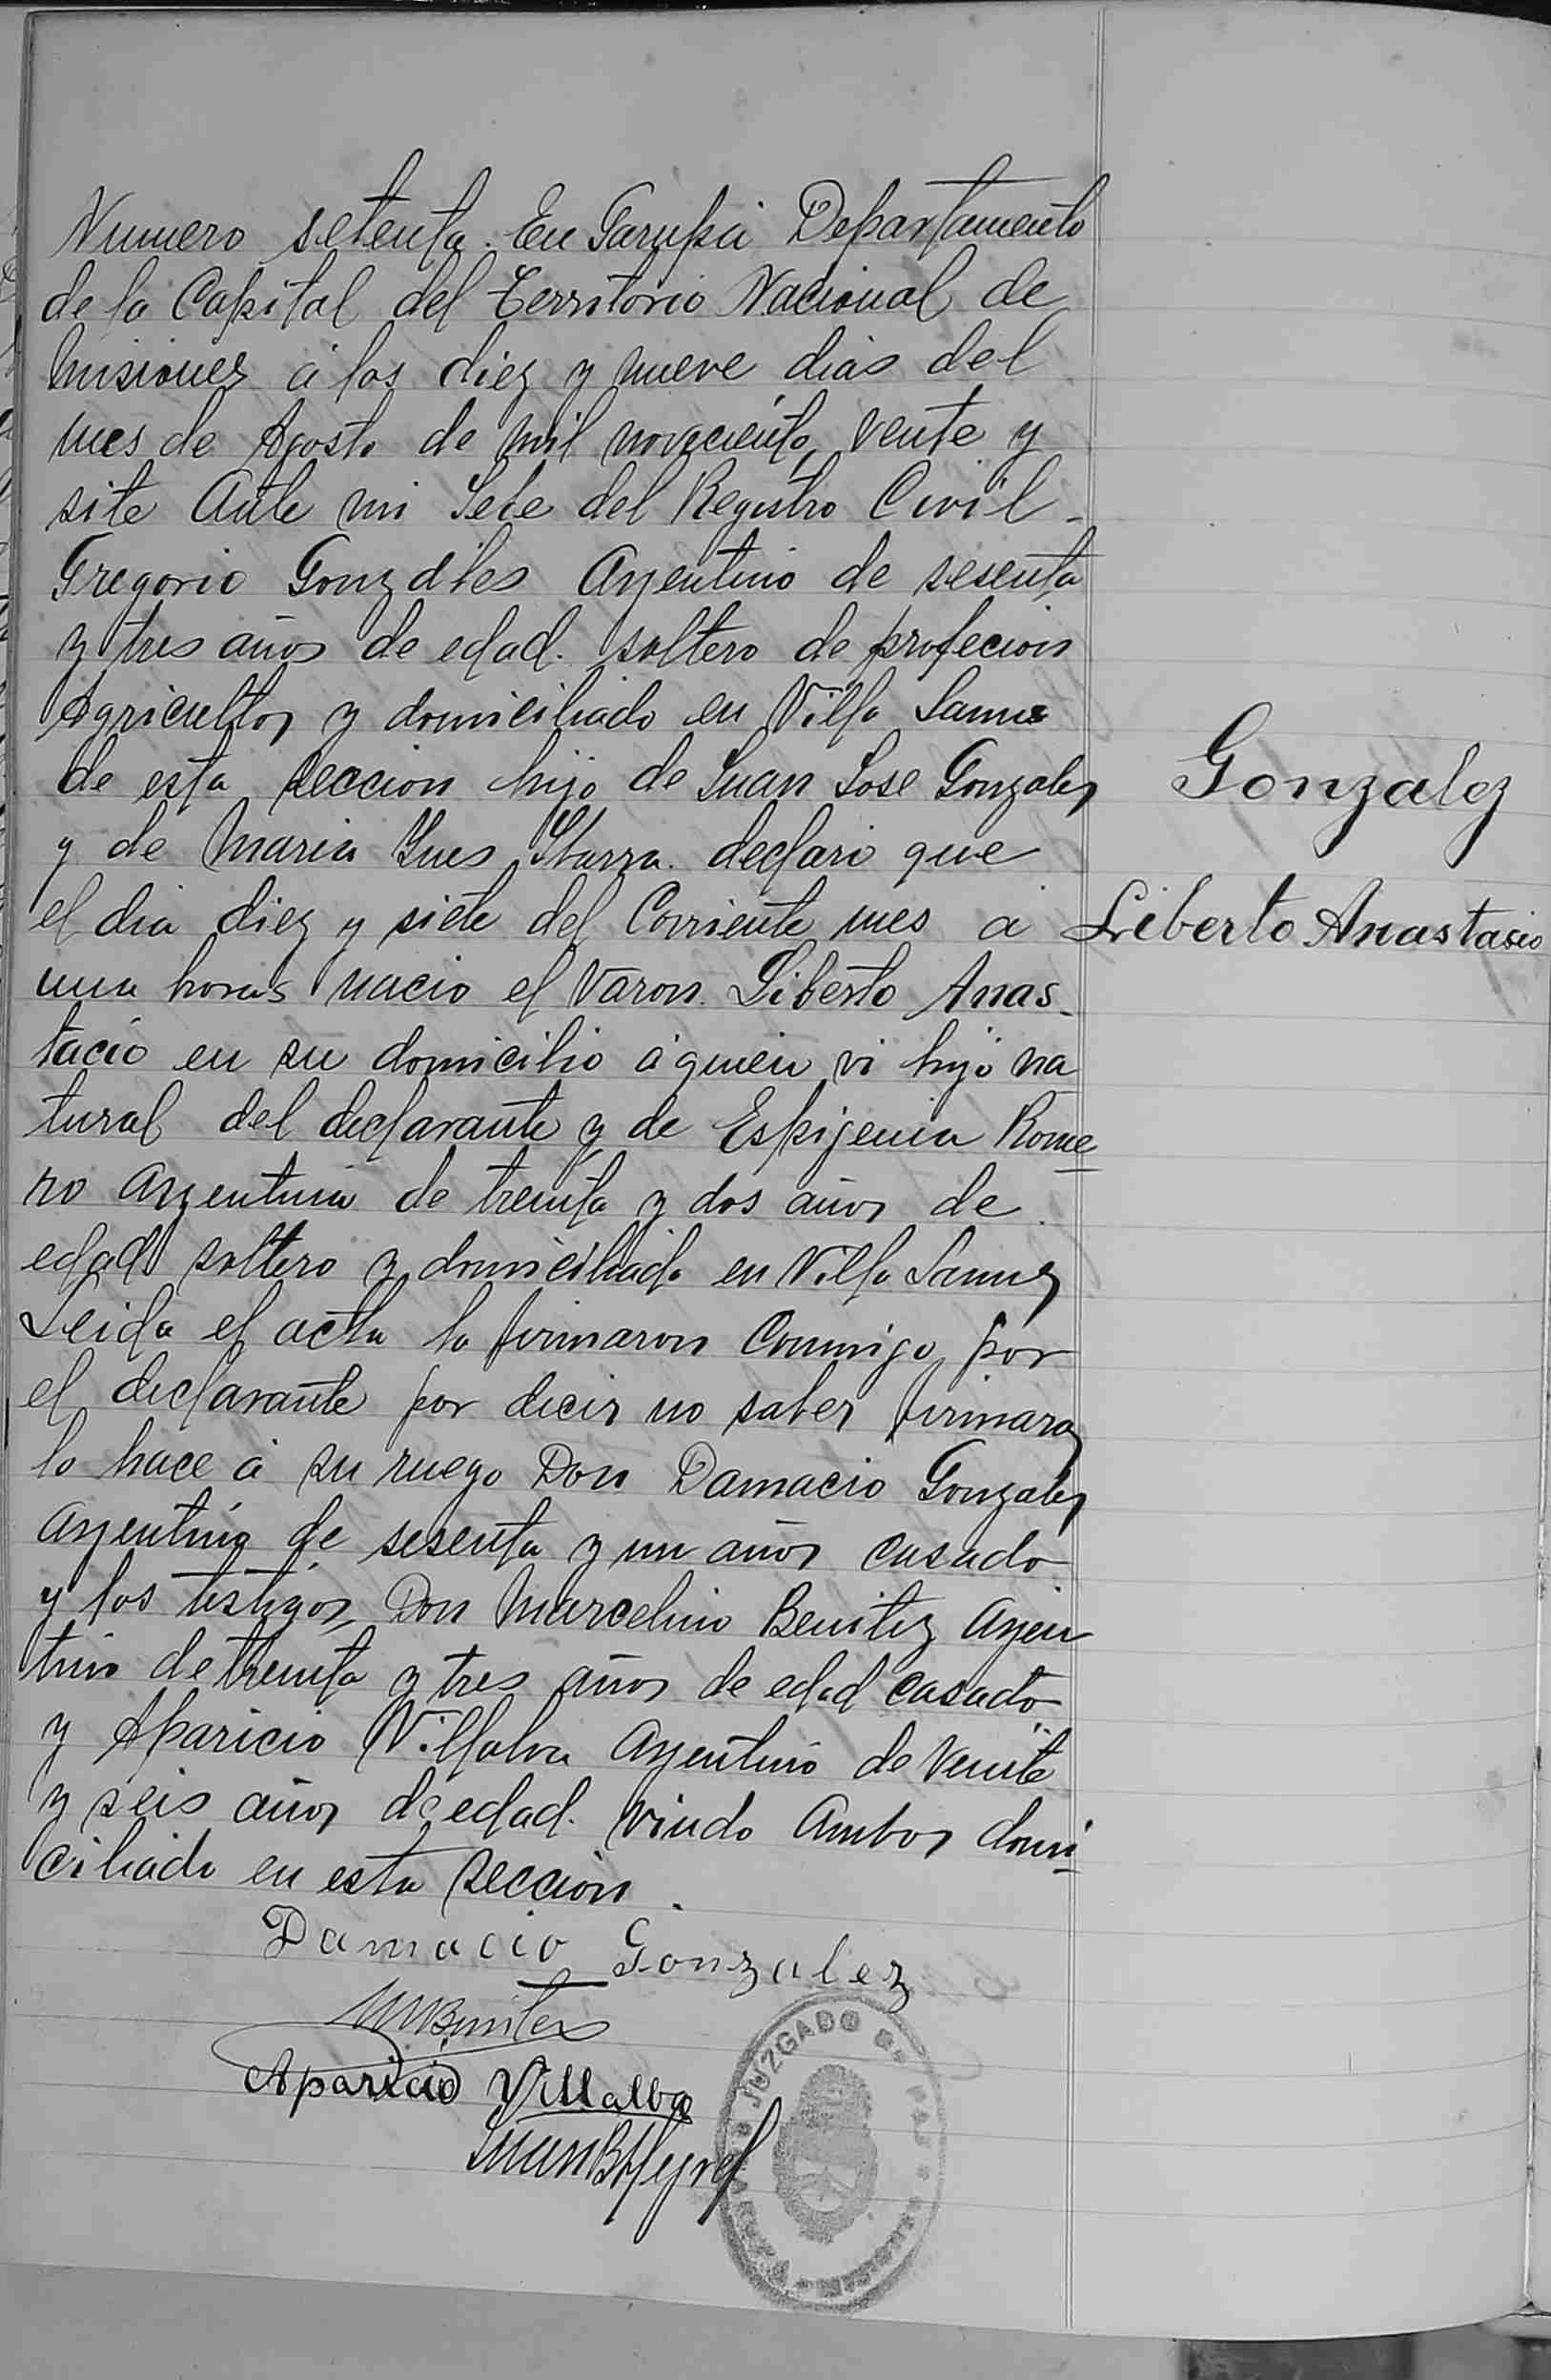 Numero setenta. En Garupá Departamento
de la Capital del Territorio Nacional de
Misiones á los diez y nueve dias del
mes de Agosto de mil noveciento vente y
site Ante mi Jefe del Registro Civil
Gregorio Gonzales Argentino de sesenta
y tres años de edad. soltero de profecion
Agricultor y domiciliado en Villa Lanus
de esta seccion hijo de Juan Jose Gonzales
y de Maria Ynes Ybarra. declaro que
el dia diez y siete del Corriente mes a
una horas nacio el Varon. Liberto Anas-
tacio en su domicilio á quien vi hijo na
tural del declarante y de Espigenia Rome
ro Argentina de treinta y dos años de
edad soltero y domiciliado en Villa Lanus
Leida el acta la firmaron Conmigo por
el declarante por decir no saber firmar
lo hace á su ruego Don Damacio Gonzales
Argentino de sesenta y un años casado
y los testigos, Don Marcelino Benitez Argen
tino de treinta y tres años de edad casado
y Aparicio Villalva Argentino de Veinte
y seis años de edad. viudo Ambos domi
ciliado en esta seccion.
Gonzalez
Liberto Anastacio
Damacio Gonzalez
MBenitez
Aparicio Villalba
Juan B
JUZGADO DE PAZ